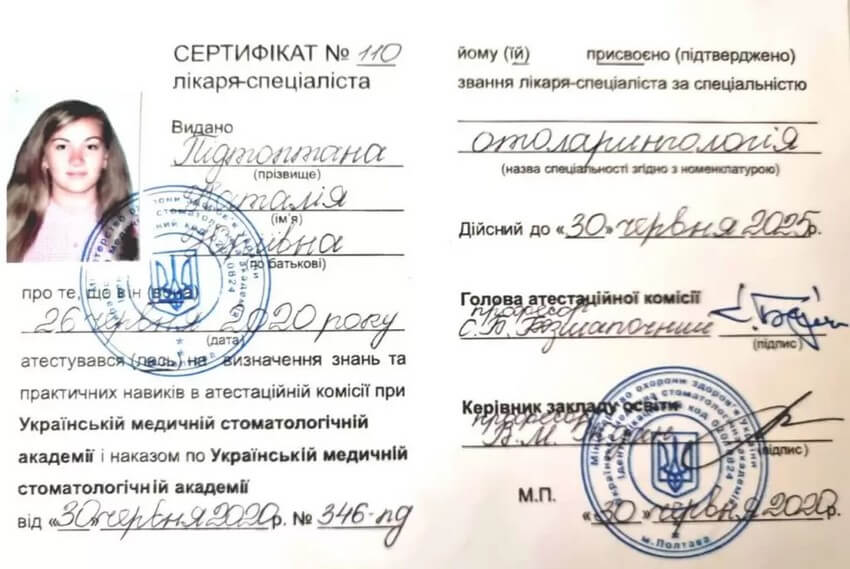 СЕРТИФІКАТ № 110
лікаря-спеціаліста
Видано
Підтоптана
(прізвище)
Наталія
(ім'я)
(по батькові)
про те, що він (вона)
26 червня 2020 року
(дата)
атестувався (лась) на визначення знань та
практичних навиків в атестаційній комісії при
Українській медичній стоматологічній
академії і наказом по Українській медичній
стоматологічній академії
від «30» червня 2020р. № 346-пд
йому (їй) присвоєно (підтверджено)
звання лікаря-спеціаліста за спеціальністю
отоларингологія
(назва спеціальності згідно з номенклатурою)
Дійсний до «30» червня 2025р.
Голова атестаційної комісії
професор
С.Б. Безшапочний
(підпис)
Керівник закладу освіти
професор
В.М.
(підпис)
М.П.
«30» червня 2020р.
м.Полтава